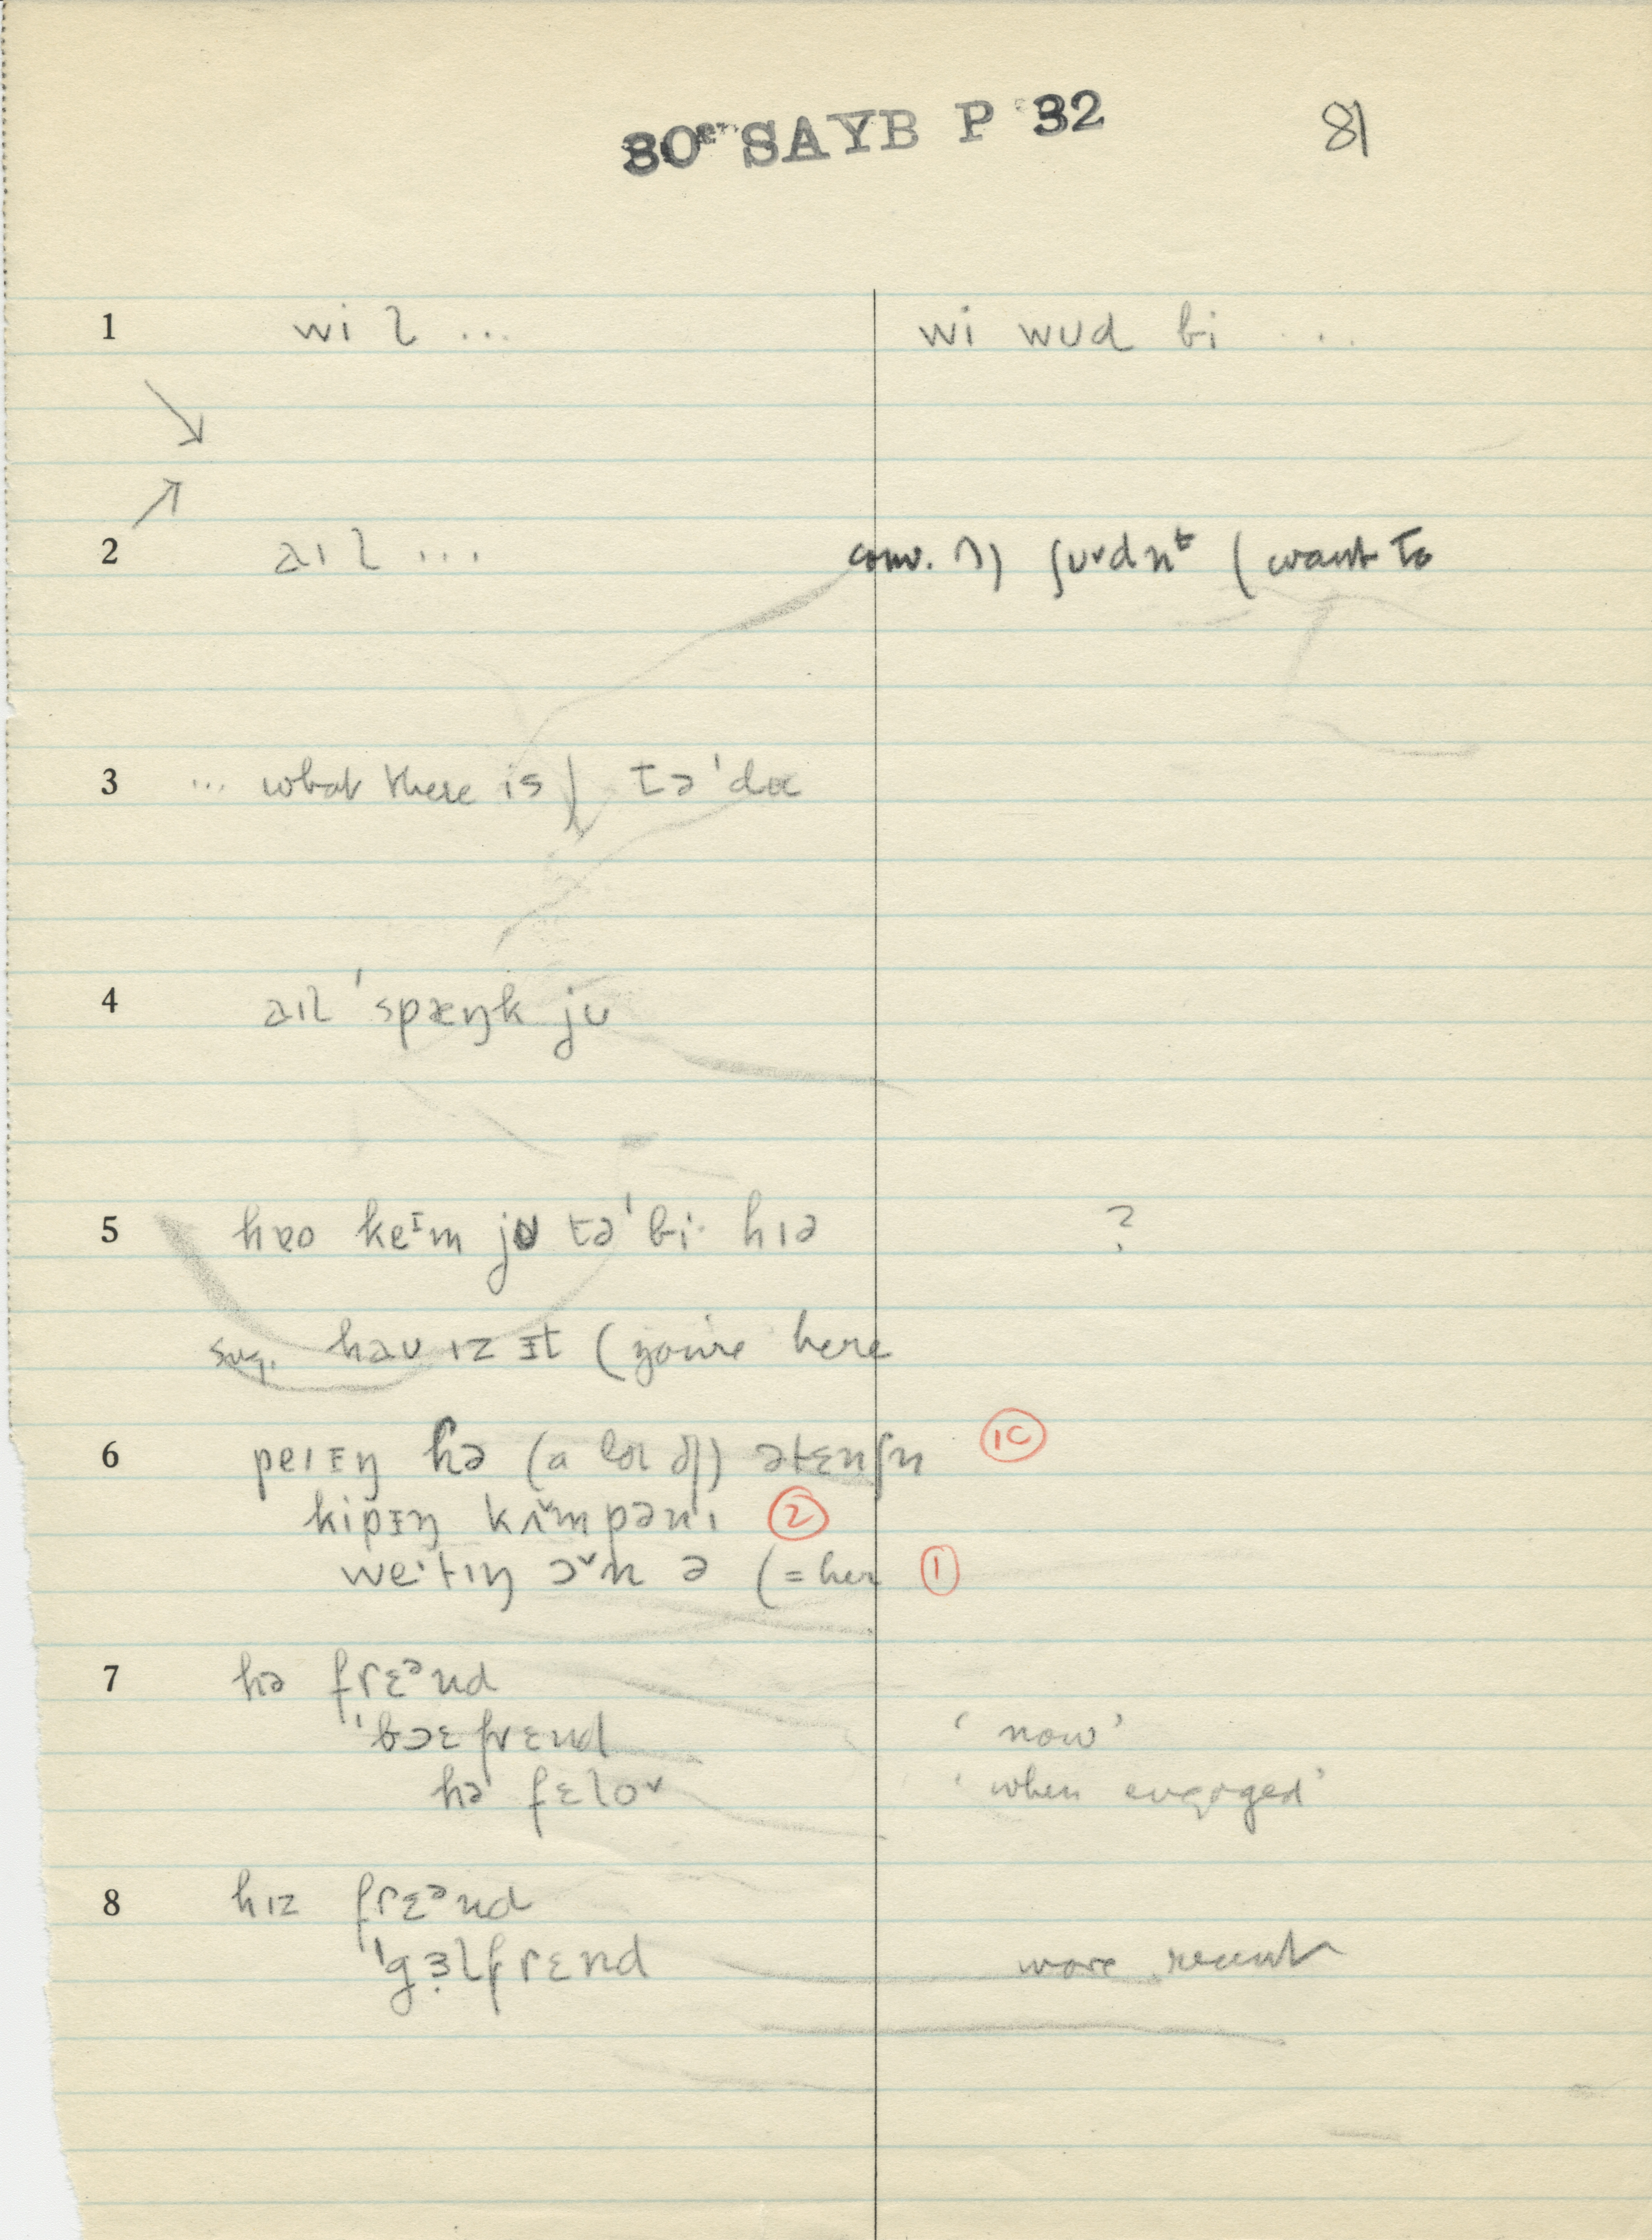 30 SAYB P 32 81
1 wi l ... wi wud bi ...
2 aɪl ... conv. ʃᴜ˅dn̩ᵗ ( want to
3 ... what there is tə'du
4 aɪl 'spæŋk ju
5 hɐo keᴵm jʊ tə'bi· hɪə ?
sug. haʊ ɪz ɪt ( you're here
6 peɪɪŋ hə (a lot of) ətɛnʃn 1C
kipɪŋ kʌ˅mpənɪ 2
we·tɪŋ ɔ˅n ə (= her 1
7 hə frɛᵊnd
'bɔɛfrɛnd ‘now’
hə fɛlo˅ ‘when engaged’
8 hɪz frɛᵊnd
'gɜ̣lfrɛnd more recent